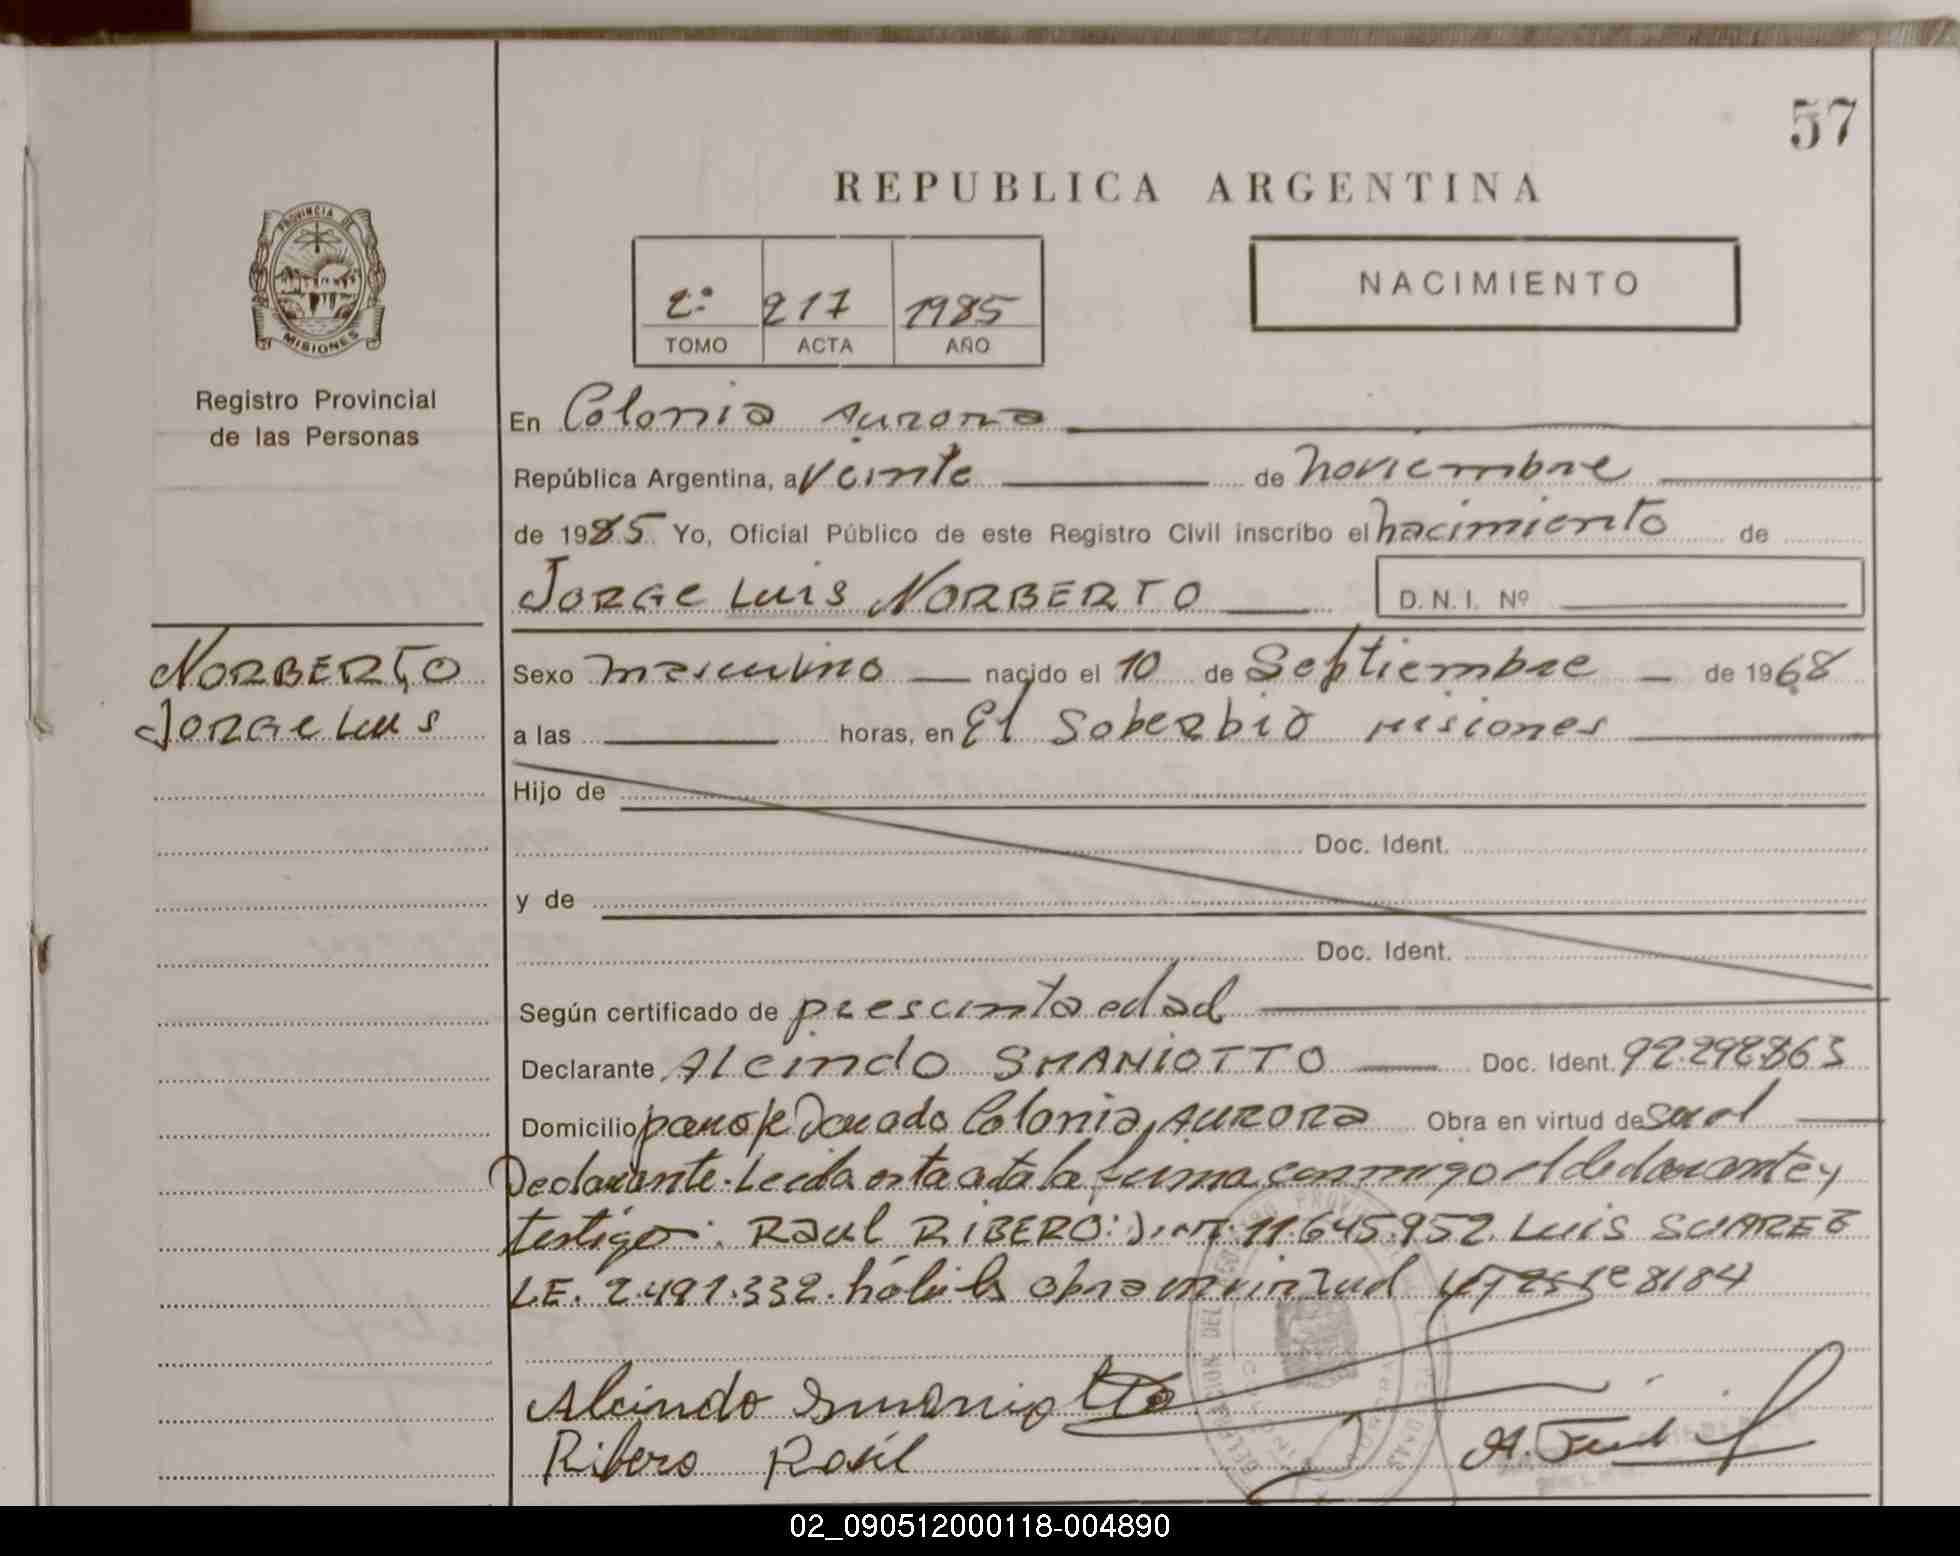 57
REPUBLICA ARGENTINA
PROVINCIA DE
MISIONES
2º 217 1985
TOMO ACTA AÑO
NACIMIENTO
Registro Provincial
de las Personas
En Colonia Aurora
República Argentina, a Veinte de noviembre
de 1985 Yo, Oficial Público de este Registro Civil inscribo el nacimiento de
JORGE LUIS NORBERTO D. N. I. Nº
NORBERTO
JORGE LUIS
Sexo masculino nacido el 10 de Septiembre de 1968
a las horas, en El Soberbio Misiones
Hijo de
Doc. Ident.
y de
Doc. Ident.
Según certificado de prescinta edad
Declarante Alcindo SMANIOTTO Doc. Ident. 92.292.863
Domicilio Colonia AURORA Obra en virtud de
Declarante. Leida esta acta la firma conmigo el declarante y
testigo: Raul RIBERO: 11.645.952. Luis SUAREZ
L.E. 2.491.332. obra en virtud 8184
Alcindo Smaniotto
Ribero Raúl
02_090512000118-004890